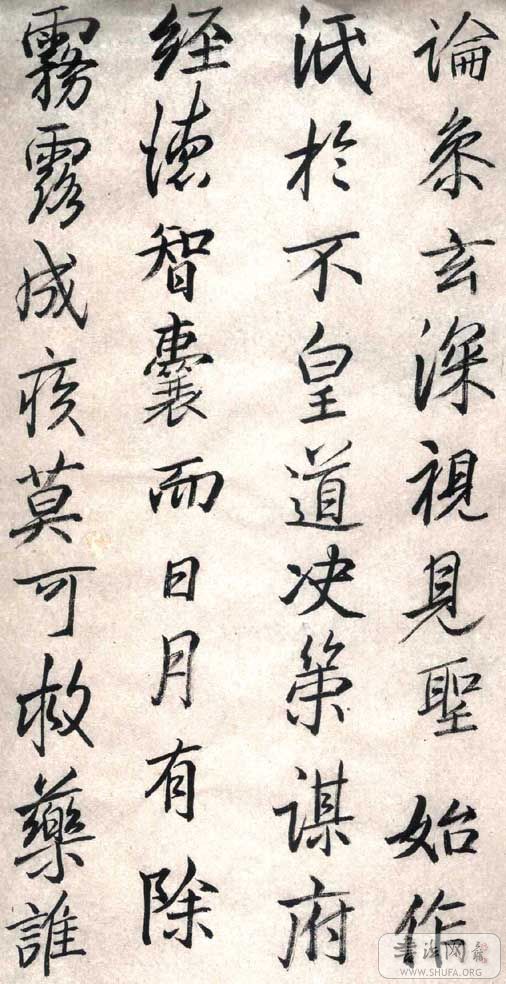 論奈玄深視見聖始作
汦於不皇道决策謀府
經德智囊而日月有除
霧露成疾莫可救藥誰
書法网
WWW.SHUFA.ORG